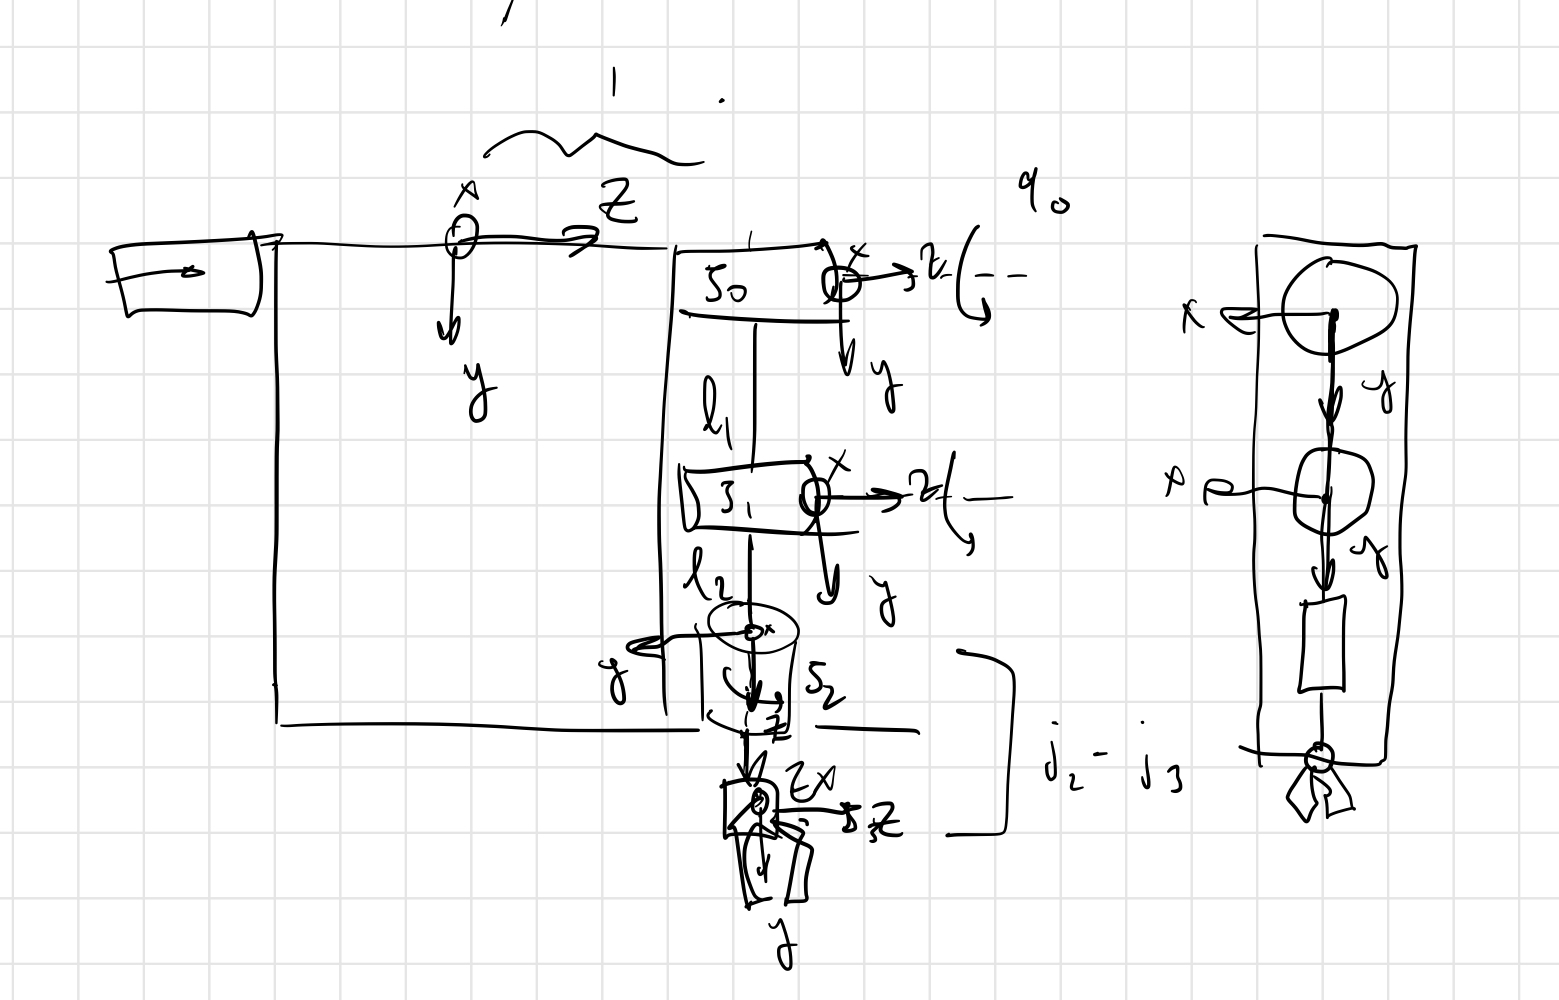 x
z
y
q0
S0
x
z
y
l1
S1
x
z
y
l2
x
y
z
S2
z
x
z
y
j2 - j3
x
y
x
y